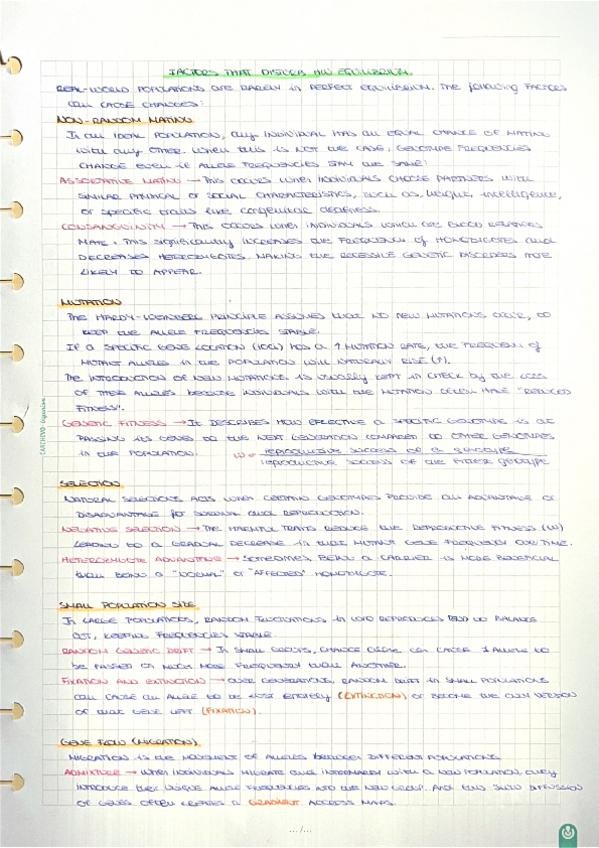 FACTORS THAT DISTURB HW EQUILIBRIUM.
REAL-WORLD POPULATIONS ARE RARELY IN PERFECT EQUILIBRIUM. The following FACTORS
CAN CAUSE CHANGES:
NON-RANDOM MATING
IN AN IDEAL POPULATION, ANY INDIVIDUAL HAS AN EQUAL CHANCE OF MATING
WITH ANY OTHER. WHEN THIS IS NOT THE CASE, GENOTYPE FREQUENCIES
CHANGE EVEN IF ALLELE FREQUENCIES STAY THE SAME:
ASSORTATIVE MATING → THIS OCCURS WHEN INDIVIDUALS CHOOSE PARTNERS WITH
SIMILAR PHYSICAL OR SOCIAL CHARACTERISTICS, SUCH AS, HEIGHT, intelligence,
OR SPECIFIC TRAITS LIKE CONGENITAL DEAFNESS.
CONSANGUINITY → THIS OCCURS WHEN INDIVIDUALS WHICH ARE BLOOD RELATIVES
MATE. THIS SIGNIFICANTLY INCREASES THE FREQUENCY OF HOMOZYGOTES AND
DECREASES HETEROZYGOTES. MAKING THE RECESSIVE GENETIC DISORDERS MORE
LIKELY TO APPEAR.
MUTATION
THE HARDY-WEINBERG PRINCIPLE ASSUMES THAT NO NEW MUTATIONS OCCUR, TO
KEEP THE ALLELE FREQUENCIES STABLE.
IF A SPECIFIC GENE LOCATION (LOCI) HAS A ↑ MUTATION RATE, THE FREQUENCY OF
MUTANT ALLELES IN THE POPULATION WILL NATURALLY RISE (↑).
THE INTRODUCTION OF NEW MUTATIONS IS USUALLY KEPT IN CHECK BY THE LOSS
OF THESE ALLELES BECAUSE INDIVIDUALS WITH THE MUTATION OFTEN HAVE "REDUCED
FITNESS".
GENETIC FITNESS → IT DESCRIBES HOW EFFECTIVE A SPECIFIC GENOTYPE IS AT
PASSING ITS GENES TO THE NEXT GENERATION COMPARED TO OTHER GENOTYPES
IN THE POPULATION. W = reproductive success of a genotype
reproductive success of the fittest genotype
SELECTION
NATURAL SELECTIONS ACTS WHEN CERTAIN GENOTYPES PROVIDE AN ADVANTAGE OR
DISADVANTAGE FOR SURVIVAL AND REPRODUCTION.
NEGATIVE SELECTION → THE HARMFUL TRAITS REDUCE THE REPRODUCTIVE FITNESS (W)
LEADING TO A GRADUAL DECREASE IN THAT MUTANT GENE FREQUENCY OVER TIME.
HETEROZYGOTE ADVANTAGE → SOMETIMES, BEING A CARRIER IS MORE BENEFICIAL
THAN BEING A "NORMAL" OR "AFFECTED" HOMOZYGOTE.
SMALL POPULATION SIZE
IN LARGE POPULATIONS, RANDOM FLUCTUATIONS IN WHO REPRODUCES TEND TO BALANCE
OUT, KEEPING FREQUENCIES STABLE.
RANDOM GENETIC DRIFT → IN SMALL GROUPS, CHANCE ALONE CAN CAUSE 1 ALLELE TO
BE PASSED ON MUCH MORE FREQUENTLY THAN ANOTHER.
FIXATION AND EXTINCTION → OVER GENERATIONS, RANDOM DRIFT IN SMALL POPULATIONS
CAN CAUSE AN ALLELE TO BE LOST ENTIRELY (EXTINCTION) OR BECOME THE ONLY VERSION
OF THAT GENE LEFT (FIXATION).
GENE FLOW (MIGRATION)
MIGRATION IS THE MOVEMENT OF ALLELES BETWEEN DIFFERENT POPULATIONS.
ADMIXTURE → WHEN INDIVIDUALS MIGRATE AND INTERMARRY WITH A NEW POPULATION, THEY
INTRODUCE THEIR UNIQUE ALLELE FREQUENCIES INTO THE NEW GROUP. AND THIS SLOW DIFFUSION
OF GENES OFTEN CREATES A GRADIENT ACROSS MAPS.
.../...